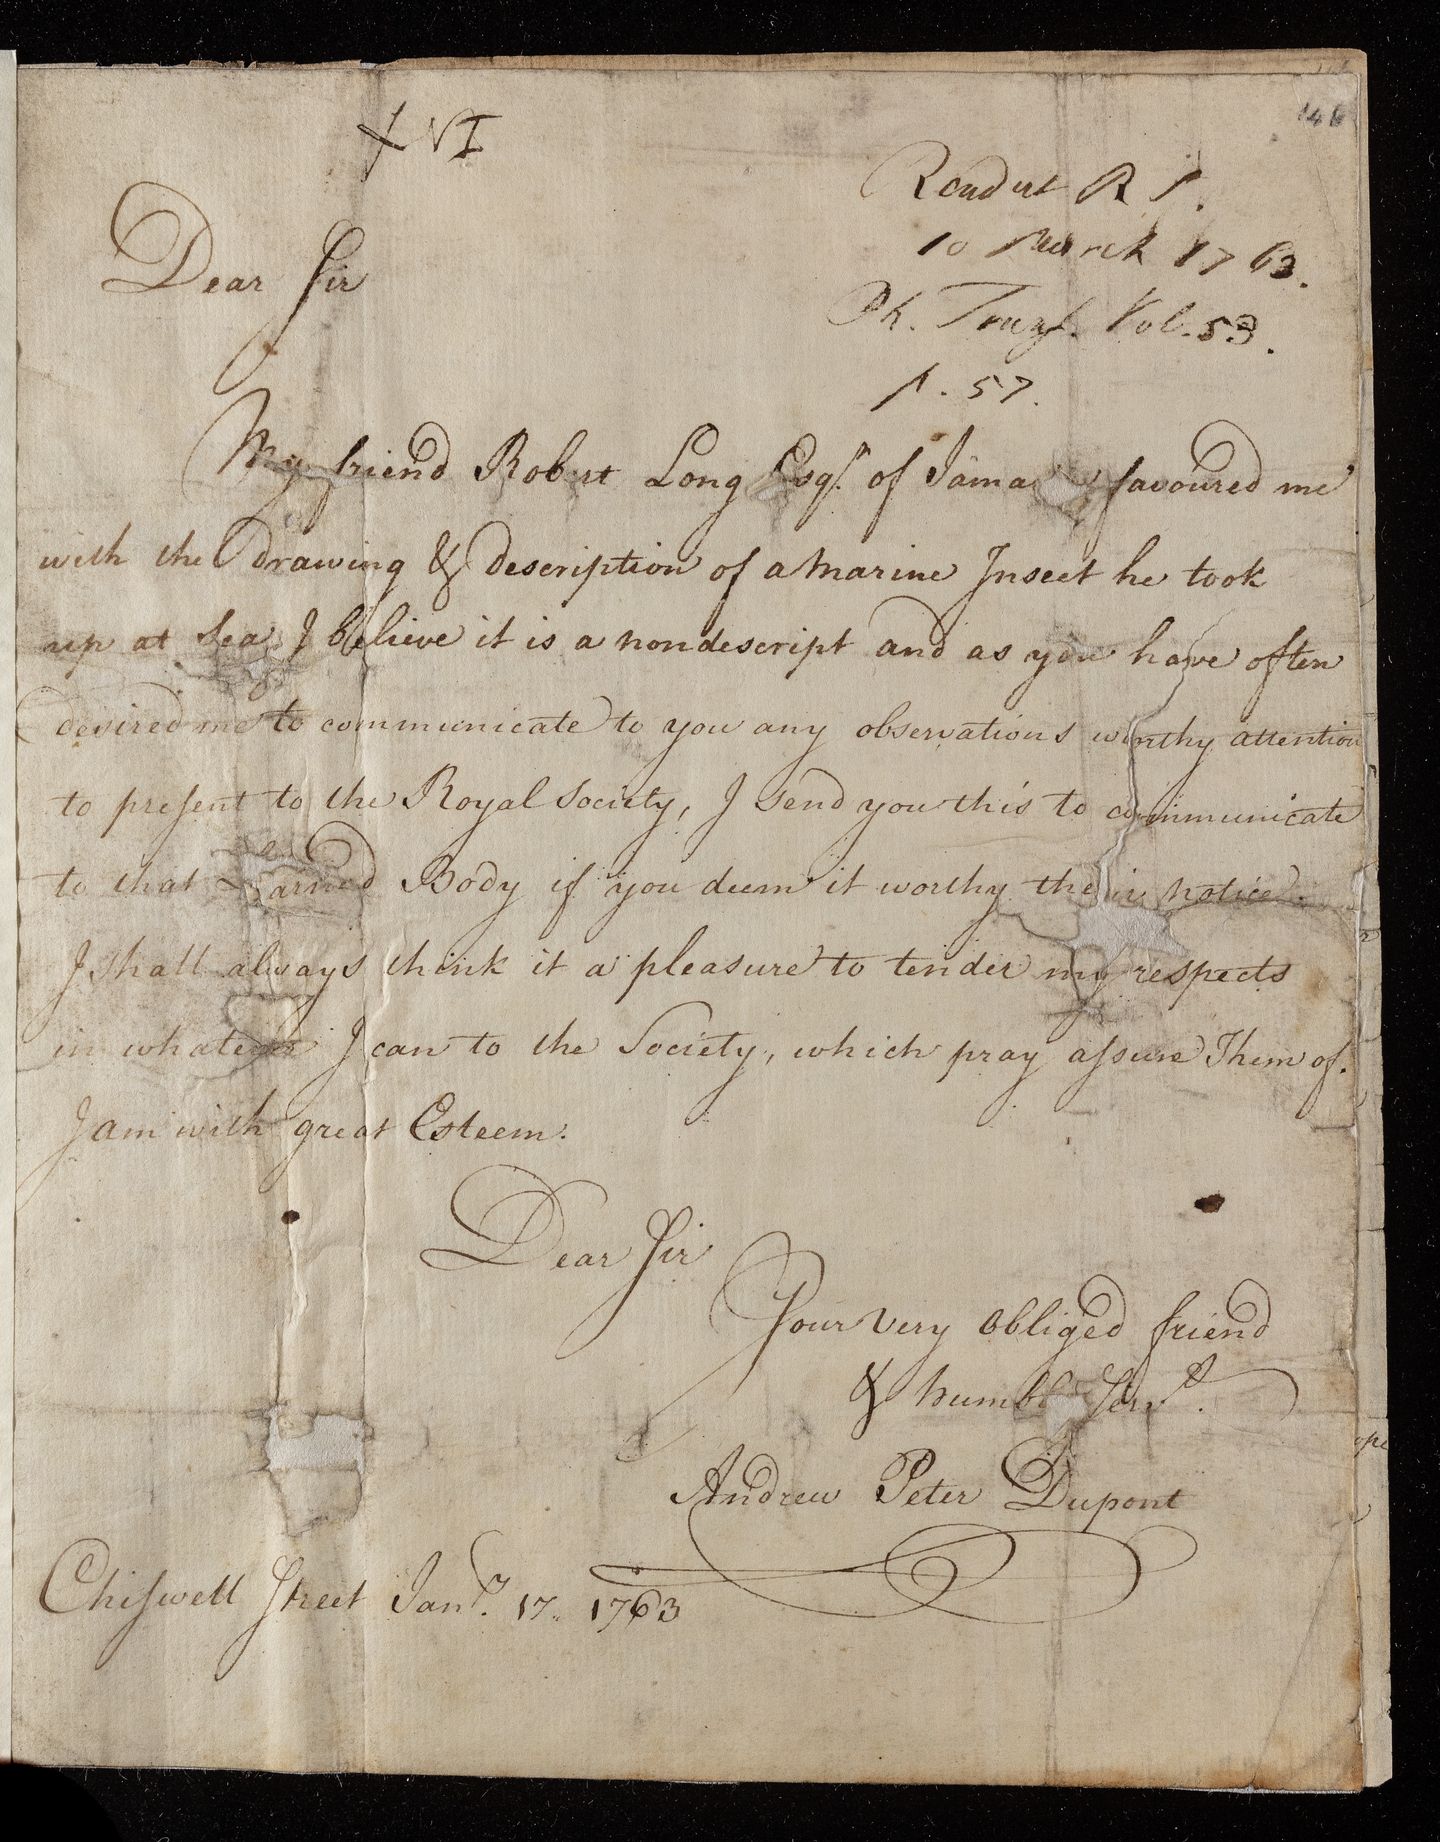 XVI
146
Read at R S.
10 March 1763.
Ph. Trans. Vol. 53.
p. 57.
Dear Sir
My friend Robert Long Esqr. of Jama favoured me
with the drawing & description of a Marine Insect he took
up at Sea, I believe it is a nondescript and as you have often
desired me to communicate to you any observations worthy attention
to present to the Royal Society, I send you this to communicate
to that Learned Body if you deem it worthy their notice.
I shall always think it a pleasure to tender my respects
in whatever I can to the Society, which pray assure Them of.
I am with great Esteem.
Dear Sir
Your very obliged friend
& humble Servt.
Andrew Peter Dupont
Chiswell Street Jany. 17. 1763